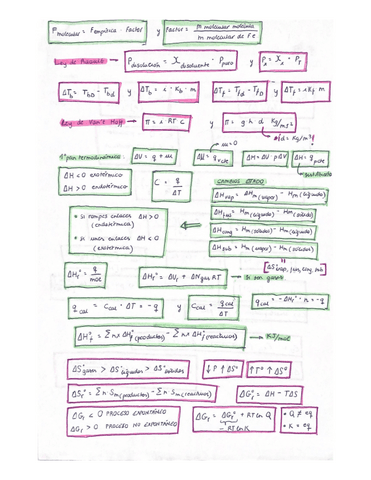 F molecular = F empírica · Factor y Factor = m molecular molécula / m molecular de Fe
Ley de Raoult → P disolución = X disolvente · P puro y Pi = Xi · PT
ΔTb = Tbd - Tbd y ΔTb = i · Kb · m ΔTf = Tfd - Tfd y ΔTf = i Kf m
Ley de Van't Hoff π = i RT C y π = g h d Kg/ms²
d = Kg/m³
w=0
1er ppo termodinámica ΔU = q + w ΔU = q vcte ΔH = ΔU + pΔV ΔH = q pcte
ΔH < 0 exotérmico
ΔH > 0 endotérmico
C = q / ΔT
CAMBIOS ESTADO
ΔH vap = Hm(vapor) - Hm(líquido)
ΔH fus = Hm(líquido) - Hm(sólido)
ΔH cong = Hm(sólido) - Hm(líquido)
ΔH sub = Hm(vapor) - Hm(sólido)
• si rompes enlaces ΔH > 0
(endotérmica)
• si unes enlaces ΔH < 0
(exotérmica)
ΔHr° = q / mol ΔHr° = ΔUr + Δn gas RT → si son gases
q cal = Ccal · ΔT = -q y Ccal = q cal / ΔT q cal = -ΔHr° · n = -q
ΔHr° = Σ n x ΔHf°(productos) - Σ n x ΔHf°(reactivos) → KJ/mol
ΔS gases > ΔS líquidos > ΔS sólidos ↓P ↑ΔS° ↑T° ↑ΔS°
ΔSr° = Σ n · Sm(productos) - Σ n · Sm(reactivos) ΔGr° = ΔH - TΔS
ΔGr < 0 PROCESO ESPONTÁNEO
ΔGr > 0 PROCESO NO ESPONTÁNEO
ΔGr = ΔGr° + RT Ln Q
- RT Ln K
• Q ≠ eq
• K = eq